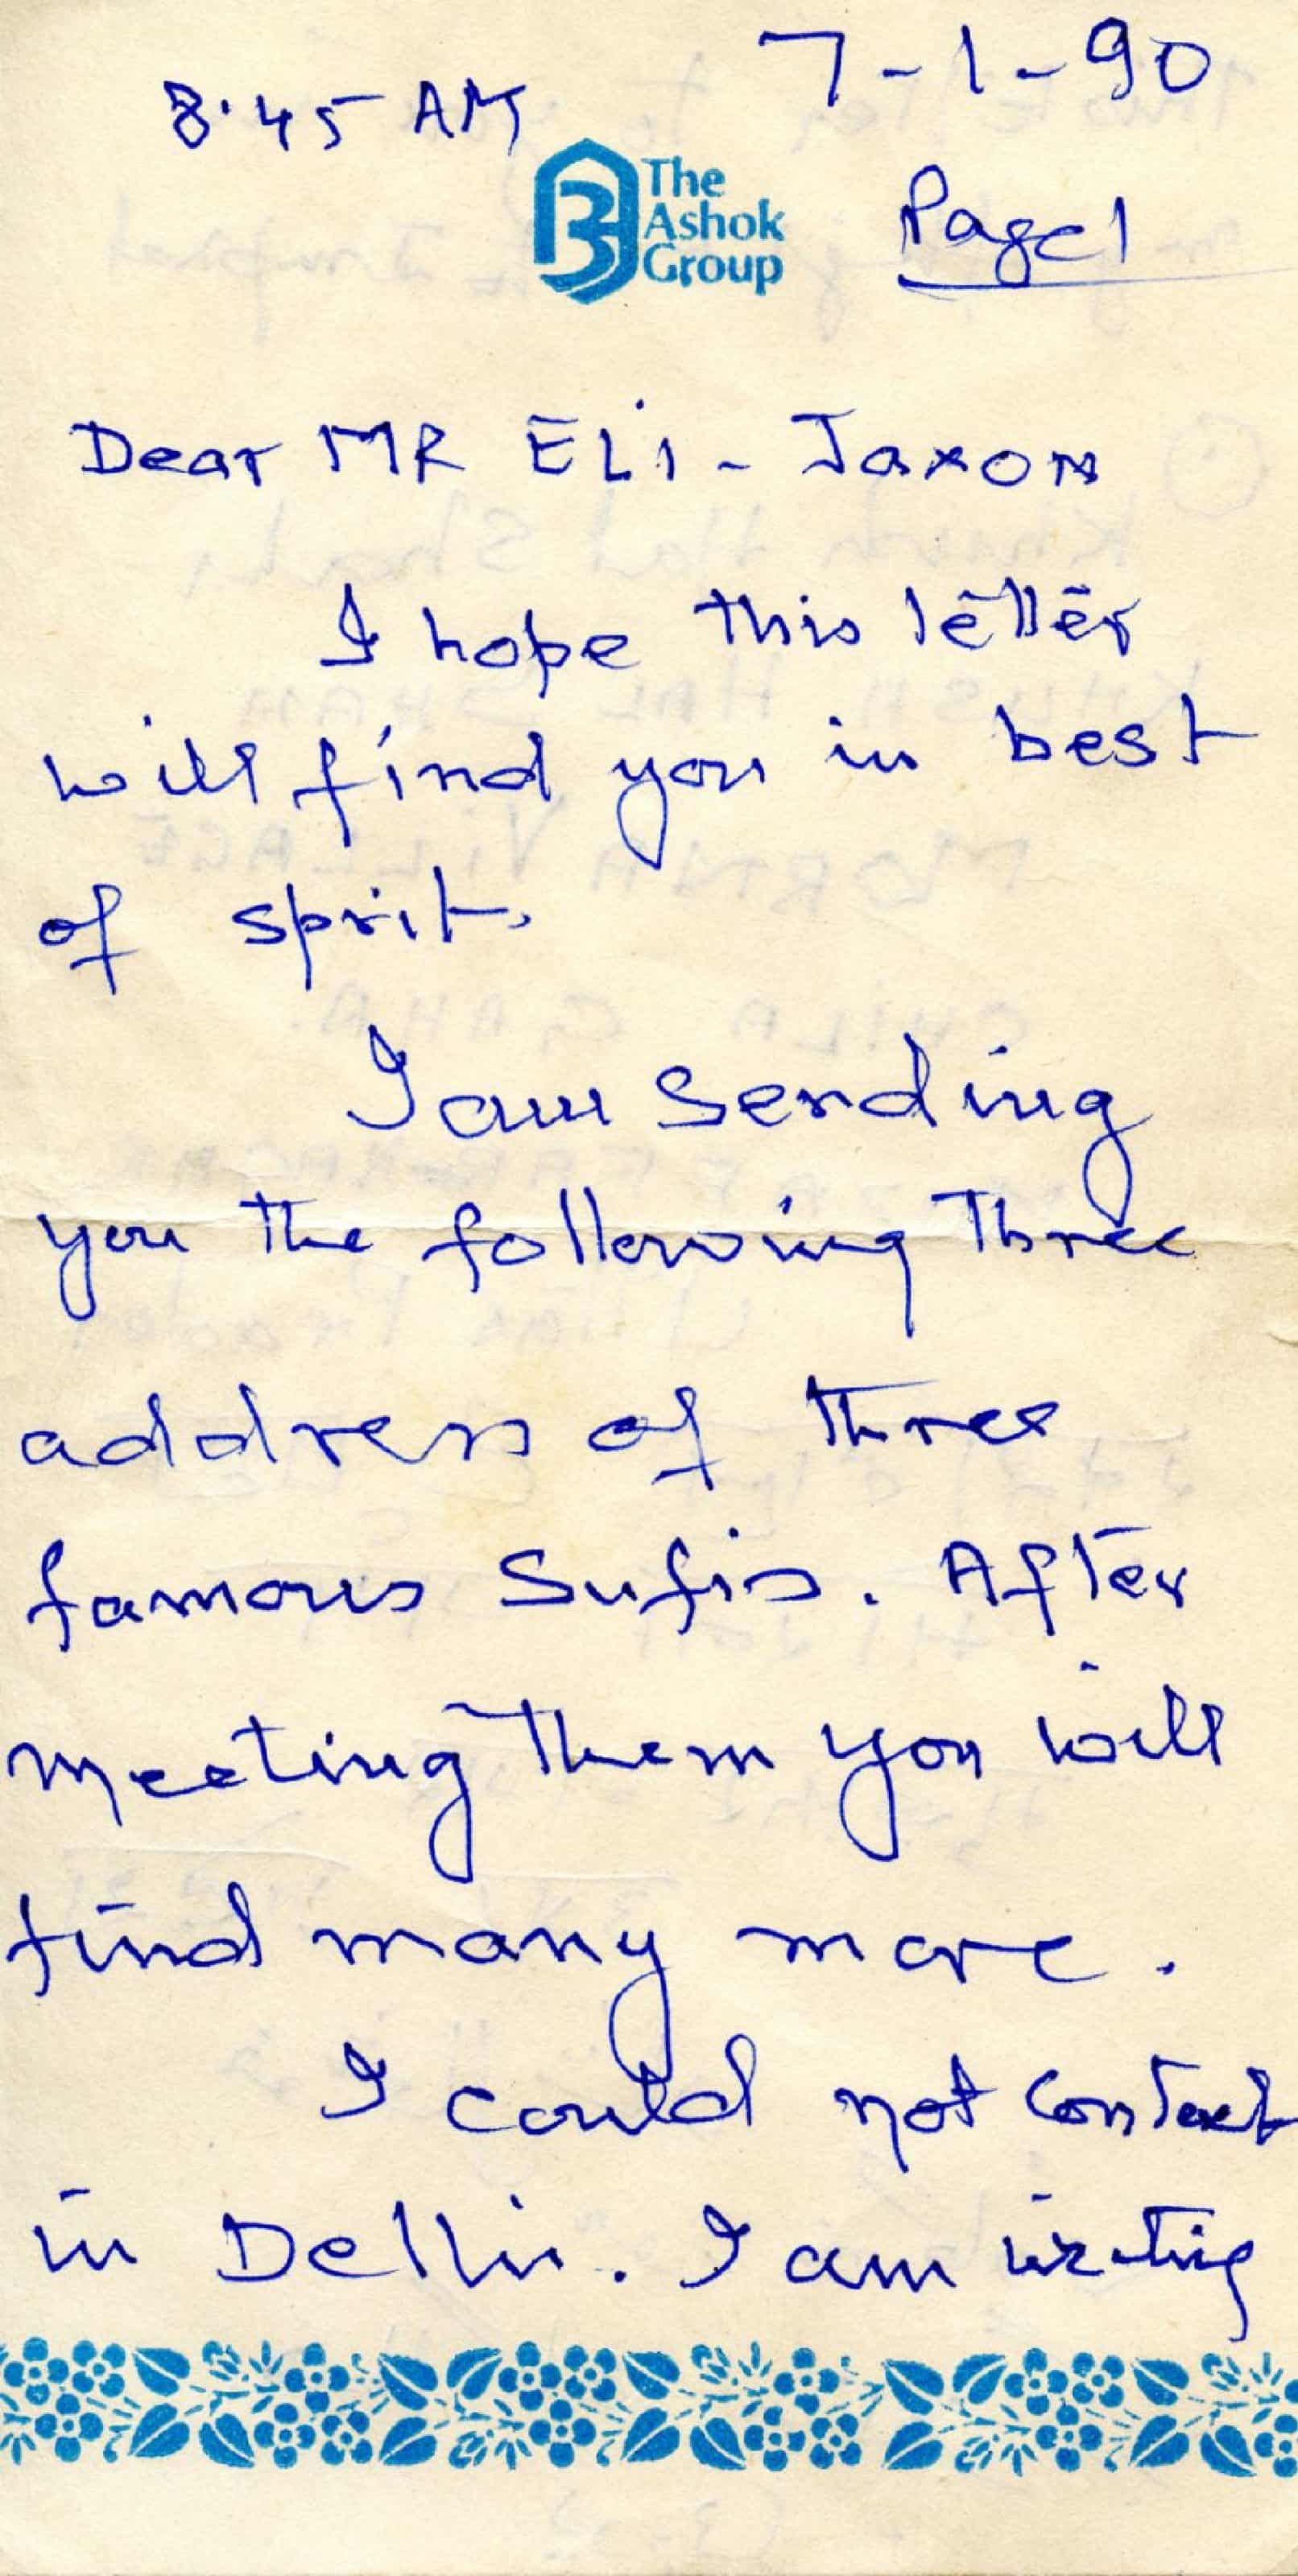 7-1-90
8.45 AM
The
Ashok
Group
Page 1
Dear MR ELi - Jaxon
I hope this letter
will find you in best
of sprit.
I am sending
you the following Three
address of three
famous Sufis. After
meeting them you will
find many more.
I could not contact
in Delhi. I am writing